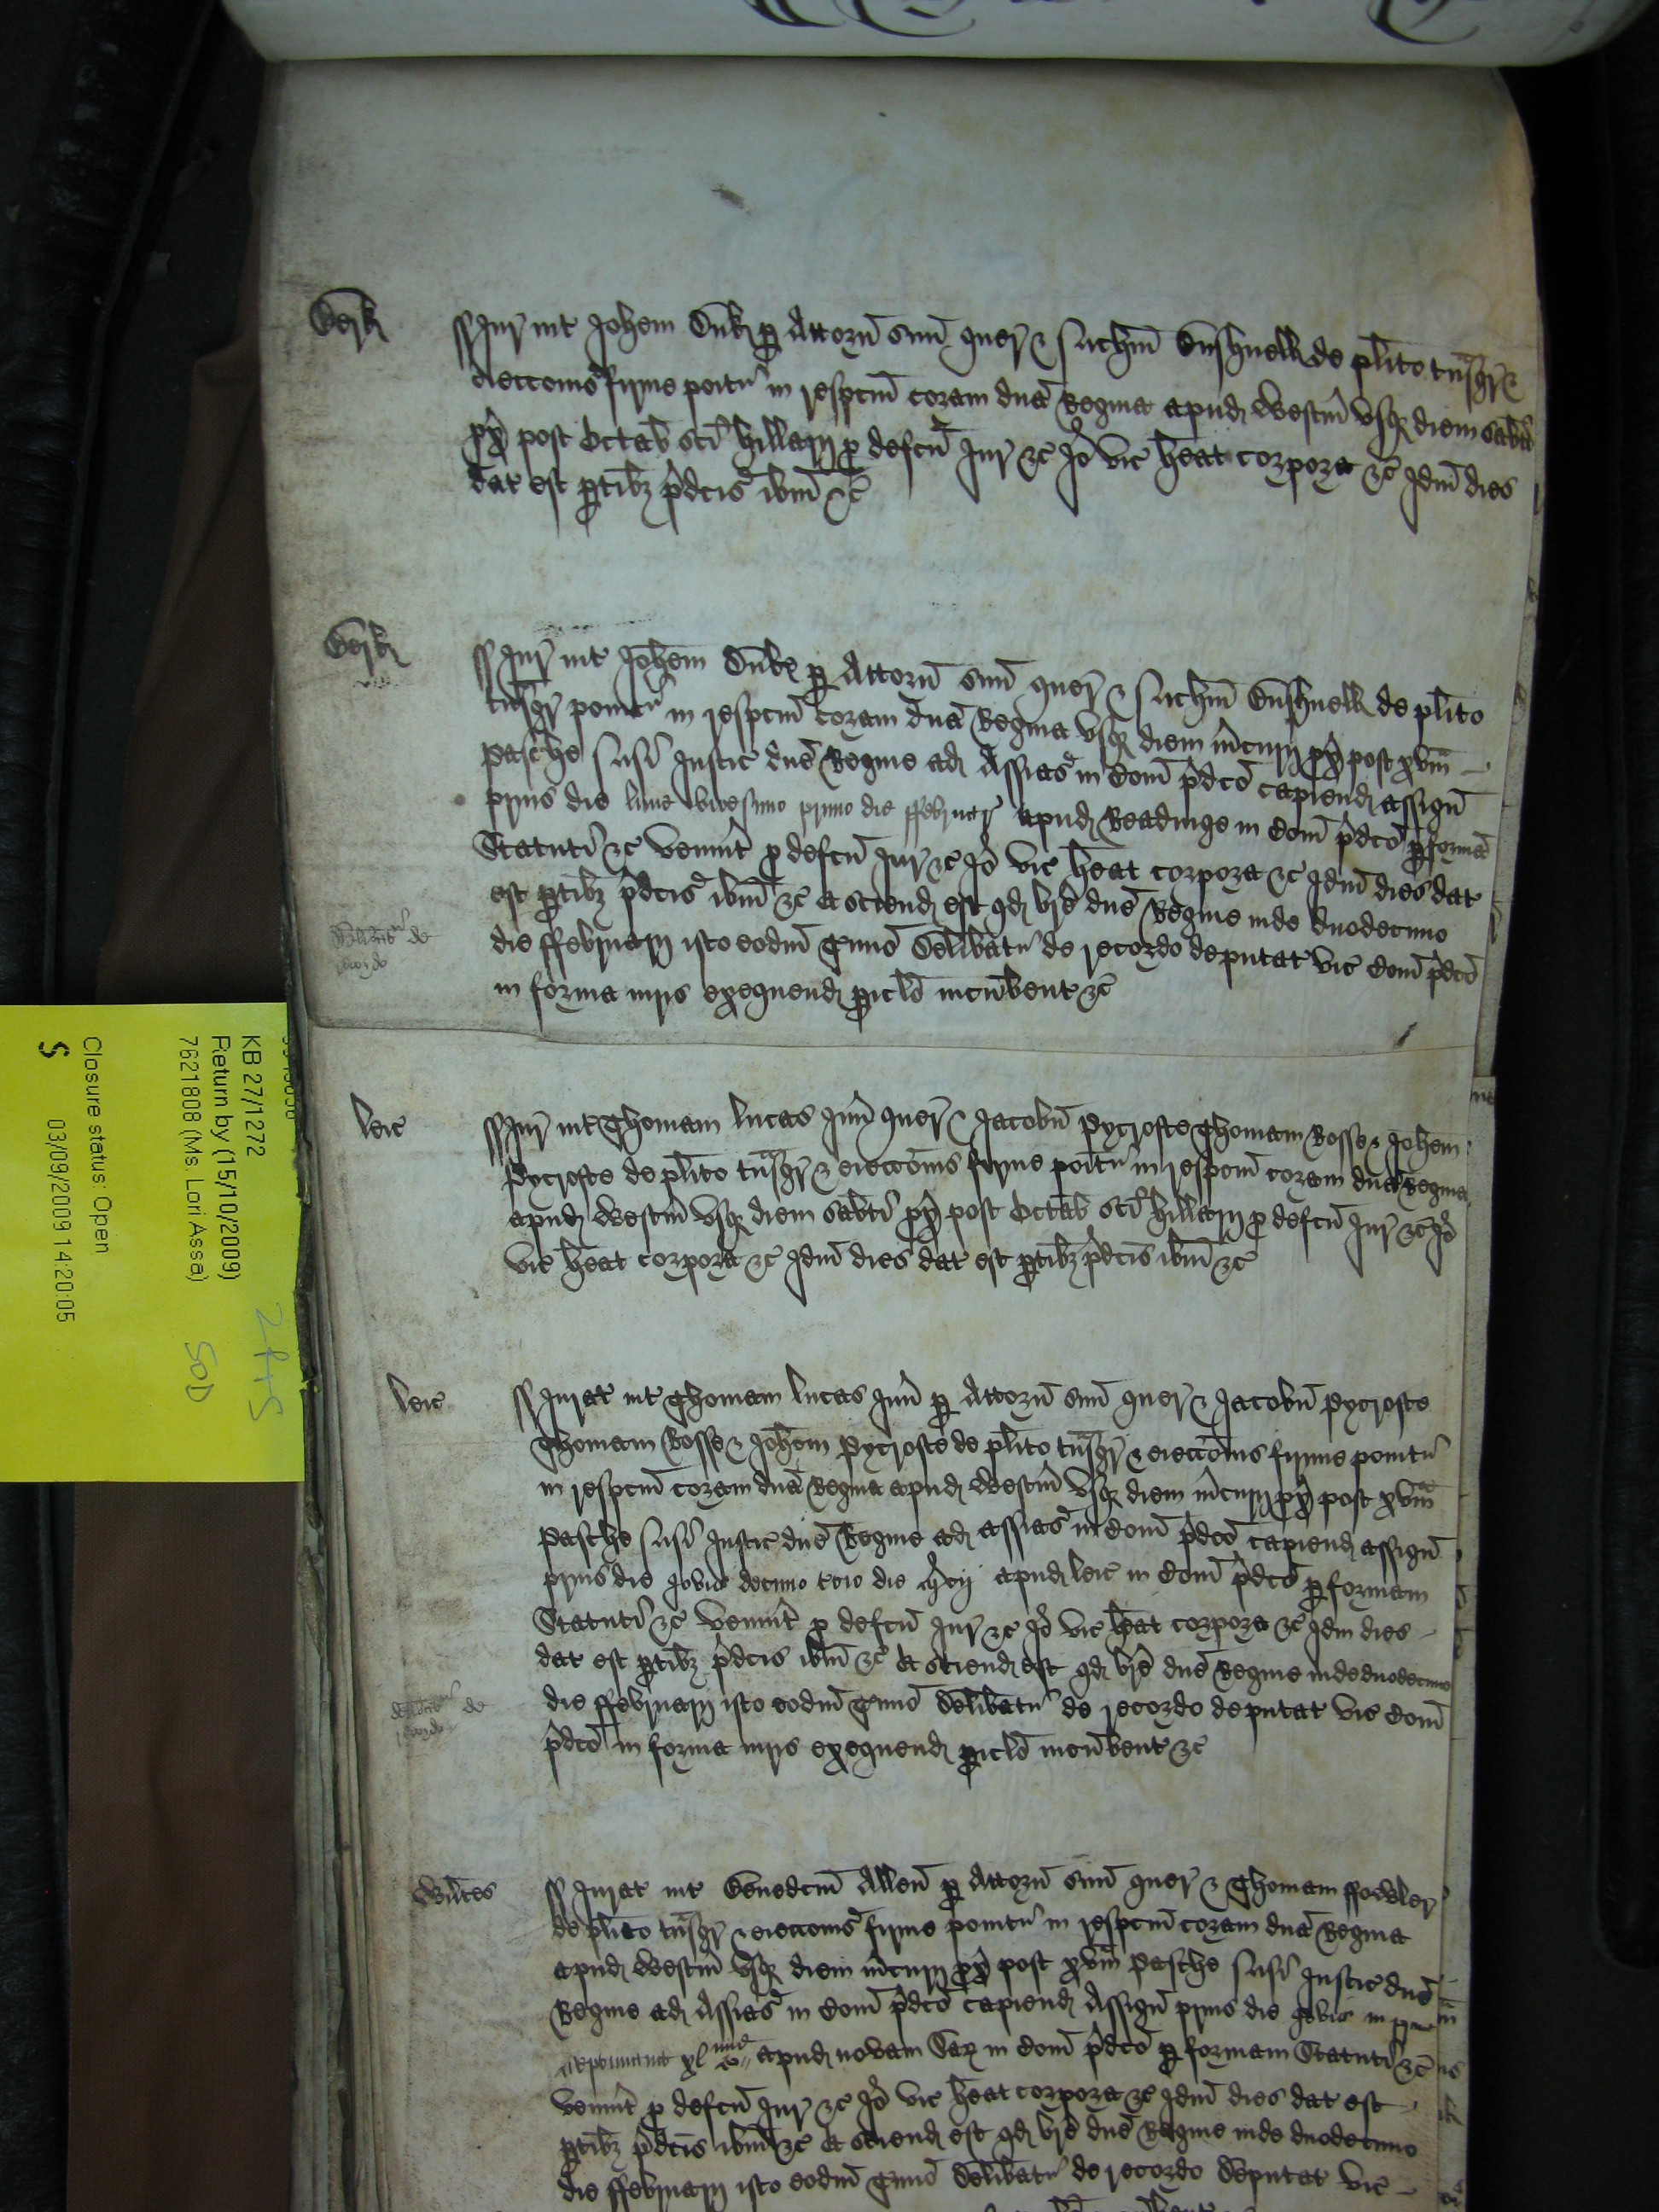 Berk
ss Jur int Johem Duk p Attorn suu quer & Richm Bushnell de plito tnsgr &
eieccois firme poitr in respcm coram dna Regina apud Westm vsq diem sabti
px post Octab sci hillarij p defcu Jur &c Jo vic heat corpora &c Jdm dies
dat est ptibz pdcis ibm &c
Berk
ss Jur int Johem Duke p Attorn suu quer & Richm Bushnell de plito
tnsgr ponitr in respcm coram dna Regina vsq diem mcurij px post xvam
pasche nisi Justic dne Regine ad Assias in Com pdco capiend assign
prius die lune vicesimo primo die ffebruar apud Readinge in Com pdco p formam
Statuti &c venint p defcu Jur &c Jo vic heat corpora &c Jdm dies dat
est ptibz pdcis ibm &c Et sciend est qd bre dne Regine inde duodecimo
die ffebruarij isto eodm Tmio Delibatr de recordo deputat vic Com pdco
in forma iuris exequend piclo incubent &c
Delibatr de
recordo
leic
ss Jur int Thomam lucas Jun quer & Jacobu Pycrofte Thomam Rosse & Johem
Pycrofte de plito tnsgr & eieccois firme poitr in respcm coram dna Regina
apud Westm vsq diem sabti px post Octab sci hillarij p defcu Jur &c Jo
vic heat corpora &c Jdm dies dat est ptibz pdcis ibm &c
leic
ss Jurat int Thomam lucas Jun p Attorn suu quer & Jacobu Pycrofte
Thomam Rosse & Johem Pycrofte de plito tnsgr & eieccois firme ponitr
in respcm coram dna Regina apud Westm vsq diem mcurij px post xvam
pasche nisi Justic dne Regine ad assias in Com pdco capiend assign
prius die Jovis decimo tcio die apud leic in Com pdco p formam
Statuti &c venint p defcu Jur &c Jo vic heat corpora &c Jdm dies
dat est ptibz pdcis ibm &c Et sciend est qd bre dne Regine inde duodecimo
die ffebruarij isto eodm Tmio Delibatr de recordo deputat vic Com
pdco in forma iuris exequend piclo incubent &c
delibatr de
recordo
Wiltes
ss Jurat int Benedcm Allen p Attorn suu quer & Thomam ffowler
de plito tnsgr & eieccois firme ponitr in respcm coram dna Regina
apud Westm vsq diem mcurij px post xvam Pasche nisi Justic dne
Regine ad Assias in Com pdco capiend Assign prius die Jovis in
septimana xl apud novam Sar in Com pdco p formam Statuti &c
venint p defcu Jur &c Jo vic heat corpora &c Jdm dies dat est
ptibz pdcis ibm &c Et sciend est qd bre dne Regine inde duodecimo
die ffebruarij isto eodm Tmio Delibatr de recordo Deputat vic
KB 27/1272
Return by (15/10/2009)
7621808 (Ms. Lori Assa)
Closure status: Open
S
03/09/2009 14:20:05
SOD